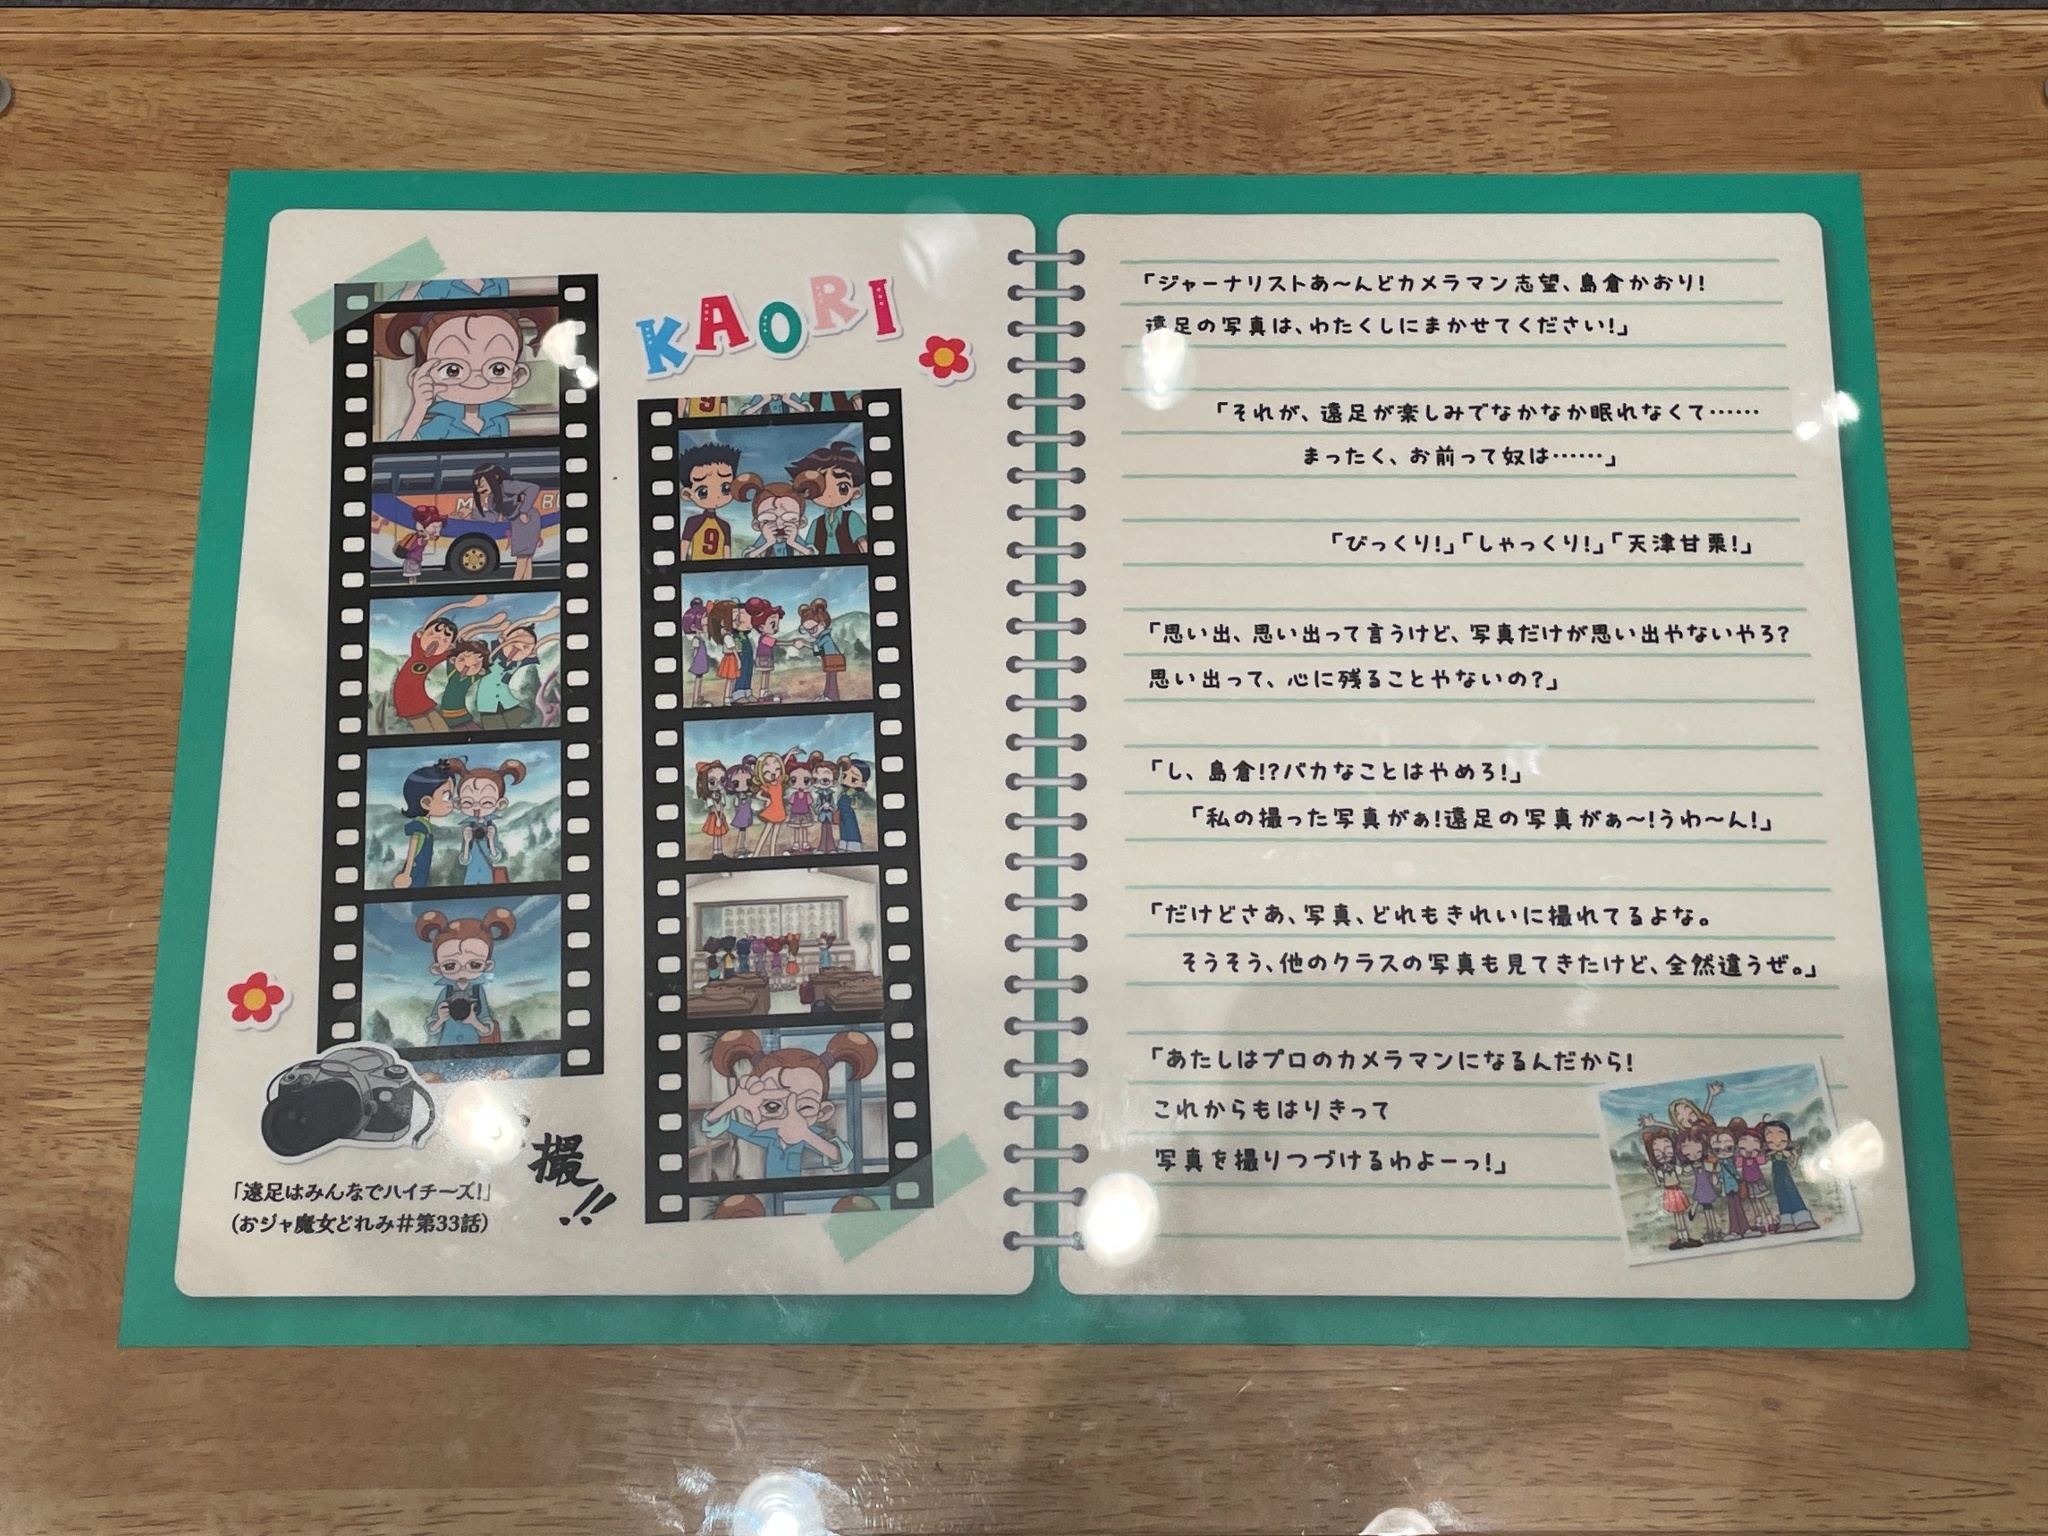 KAORI
M
BU
9
9
「遠足はみんなでハイチーズ!」
(おジャ魔女どれみ#第33話)
撮!!
「ジャーナリストあ〜んどカメラマン志望、島倉かおり!
遠足の写真は、わたくしにまかせてください!」
「それが、遠足が楽しみでなかなか眠れなくて……
まったく、お前って奴は……」
「びっくり!」「しゃっくり!」「天津甘栗!」
「思い出、思い出って言うけど、写真だけが思い出やないやろ?
思い出って、心に残ることやないの?」
「し、島倉!?バカなことはやめろ!」
「私の撮った写真がぁ!遠足の写真がぁ〜!うわ〜ん!」
「だけどさあ、写真、どれもきれいに撮れてるよな。
そうそう、他のクラスの写真も見てきたけど、全然違うぜ。」
「あたしはプロのカメラマンになるんだから!
これからもはりきって
写真を撮りつづけるわよーっ!」